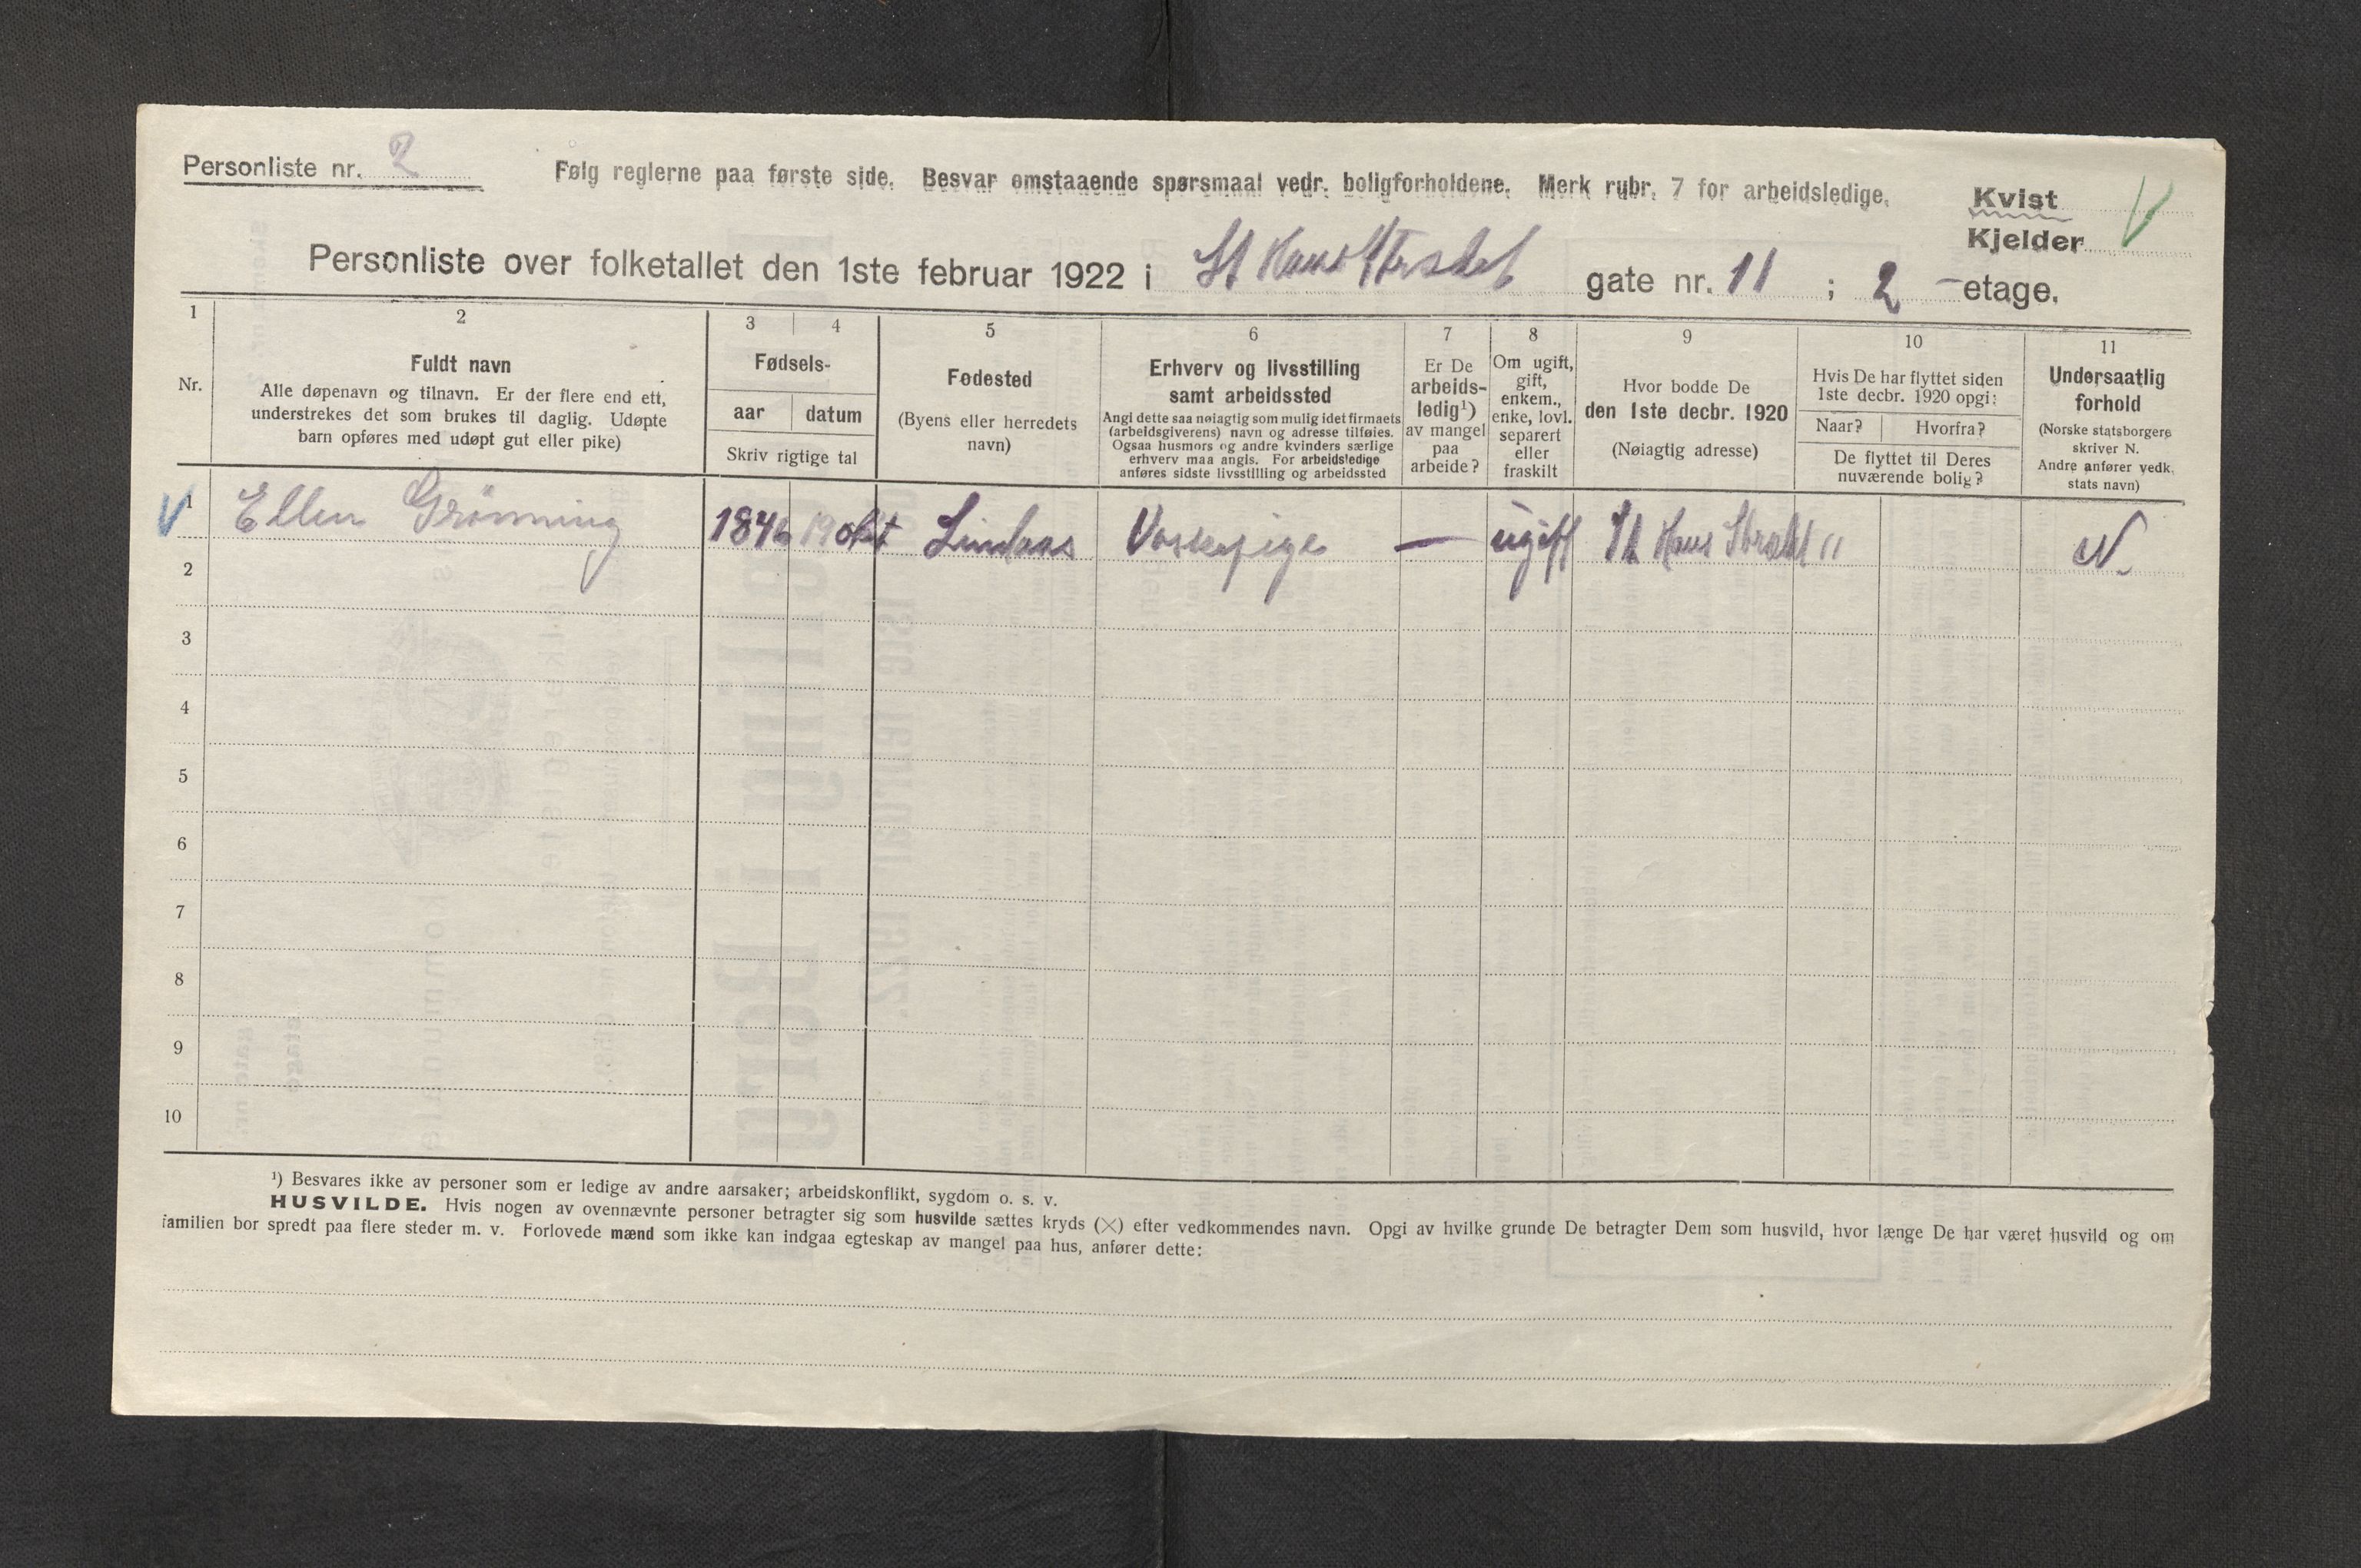 Personliste nr. 2
Følg reglerne paa første side. Besvar omstaaende spørsmaal vedr. boligforholdene. Merk rubr. 7 for arbeidsledige.
Kvist
Kjelder
Personliste over folketallet den 1ste februar 1922 i St Hans Strædet gate nr. 11 ; 2 etage.
1 2 3 4 5 6 7 8 9 10 11
Nr.
Fuldt navn
Alle døpenavn og tilnavn. Er der flere end ett,
understrekes det som brukes til daglig. Udøpte
barn opføres med udøpt gut eller pike)
Fødsels-
aar datum
Skriv rigtige tal
Fødested
(Byens eller herredets
navn)
Erhverv og livsstilling
samt arbeidssted
Angi dette saa nøiagtig som mulig idet firmaets
(arbeidsgiverens) navn og adresse tilføies.
Ogsaa husmors og andre kvinders særlige
erhverv maa angis. For arbeidsledige
anføres sidste livsstilling og arbeidssted
Er De
arbeids-
ledig¹)
av mangel
paa
arbeide?
Om ugift,
gift,
enkem.,
enke, lovl.
separert
eller
fraskilt
Hvor bodde De
den 1ste decbr. 1920
(Nøiagtig adresse)
Hvis De har flyttet siden
1ste decbr. 1920 opgi:
Naar? Hvorfra?
De flyttet til Deres
nuværende bolig?
Undersaatlig
forhold
(Norske statsborgere
skriver N.
Andre anfører vedk.
stats navn)
1 Ellen Grönning 1846 19 okt Lindaas Vaskepige — ugift St Hans Strædet 11 N.
2
3
4
5
6
7
8
9
10
¹) Besvares ikke av personer som er ledige av andre aarsaker; arbeidskonflikt, sygdom o. s. v.
HUSVILDE. Hvis nogen av ovennævnte personer betragter sig som husvilde sættes kryds (×) efter vedkommendes navn. Opgi av hvilke grunde De betragter Dem som husvild, hvor længe De har været husvild og om
familien bor spredt paa flere steder m. v. Forlovede mænd som ikke kan indgaa egteskap av mangel paa hus, anfører dette: